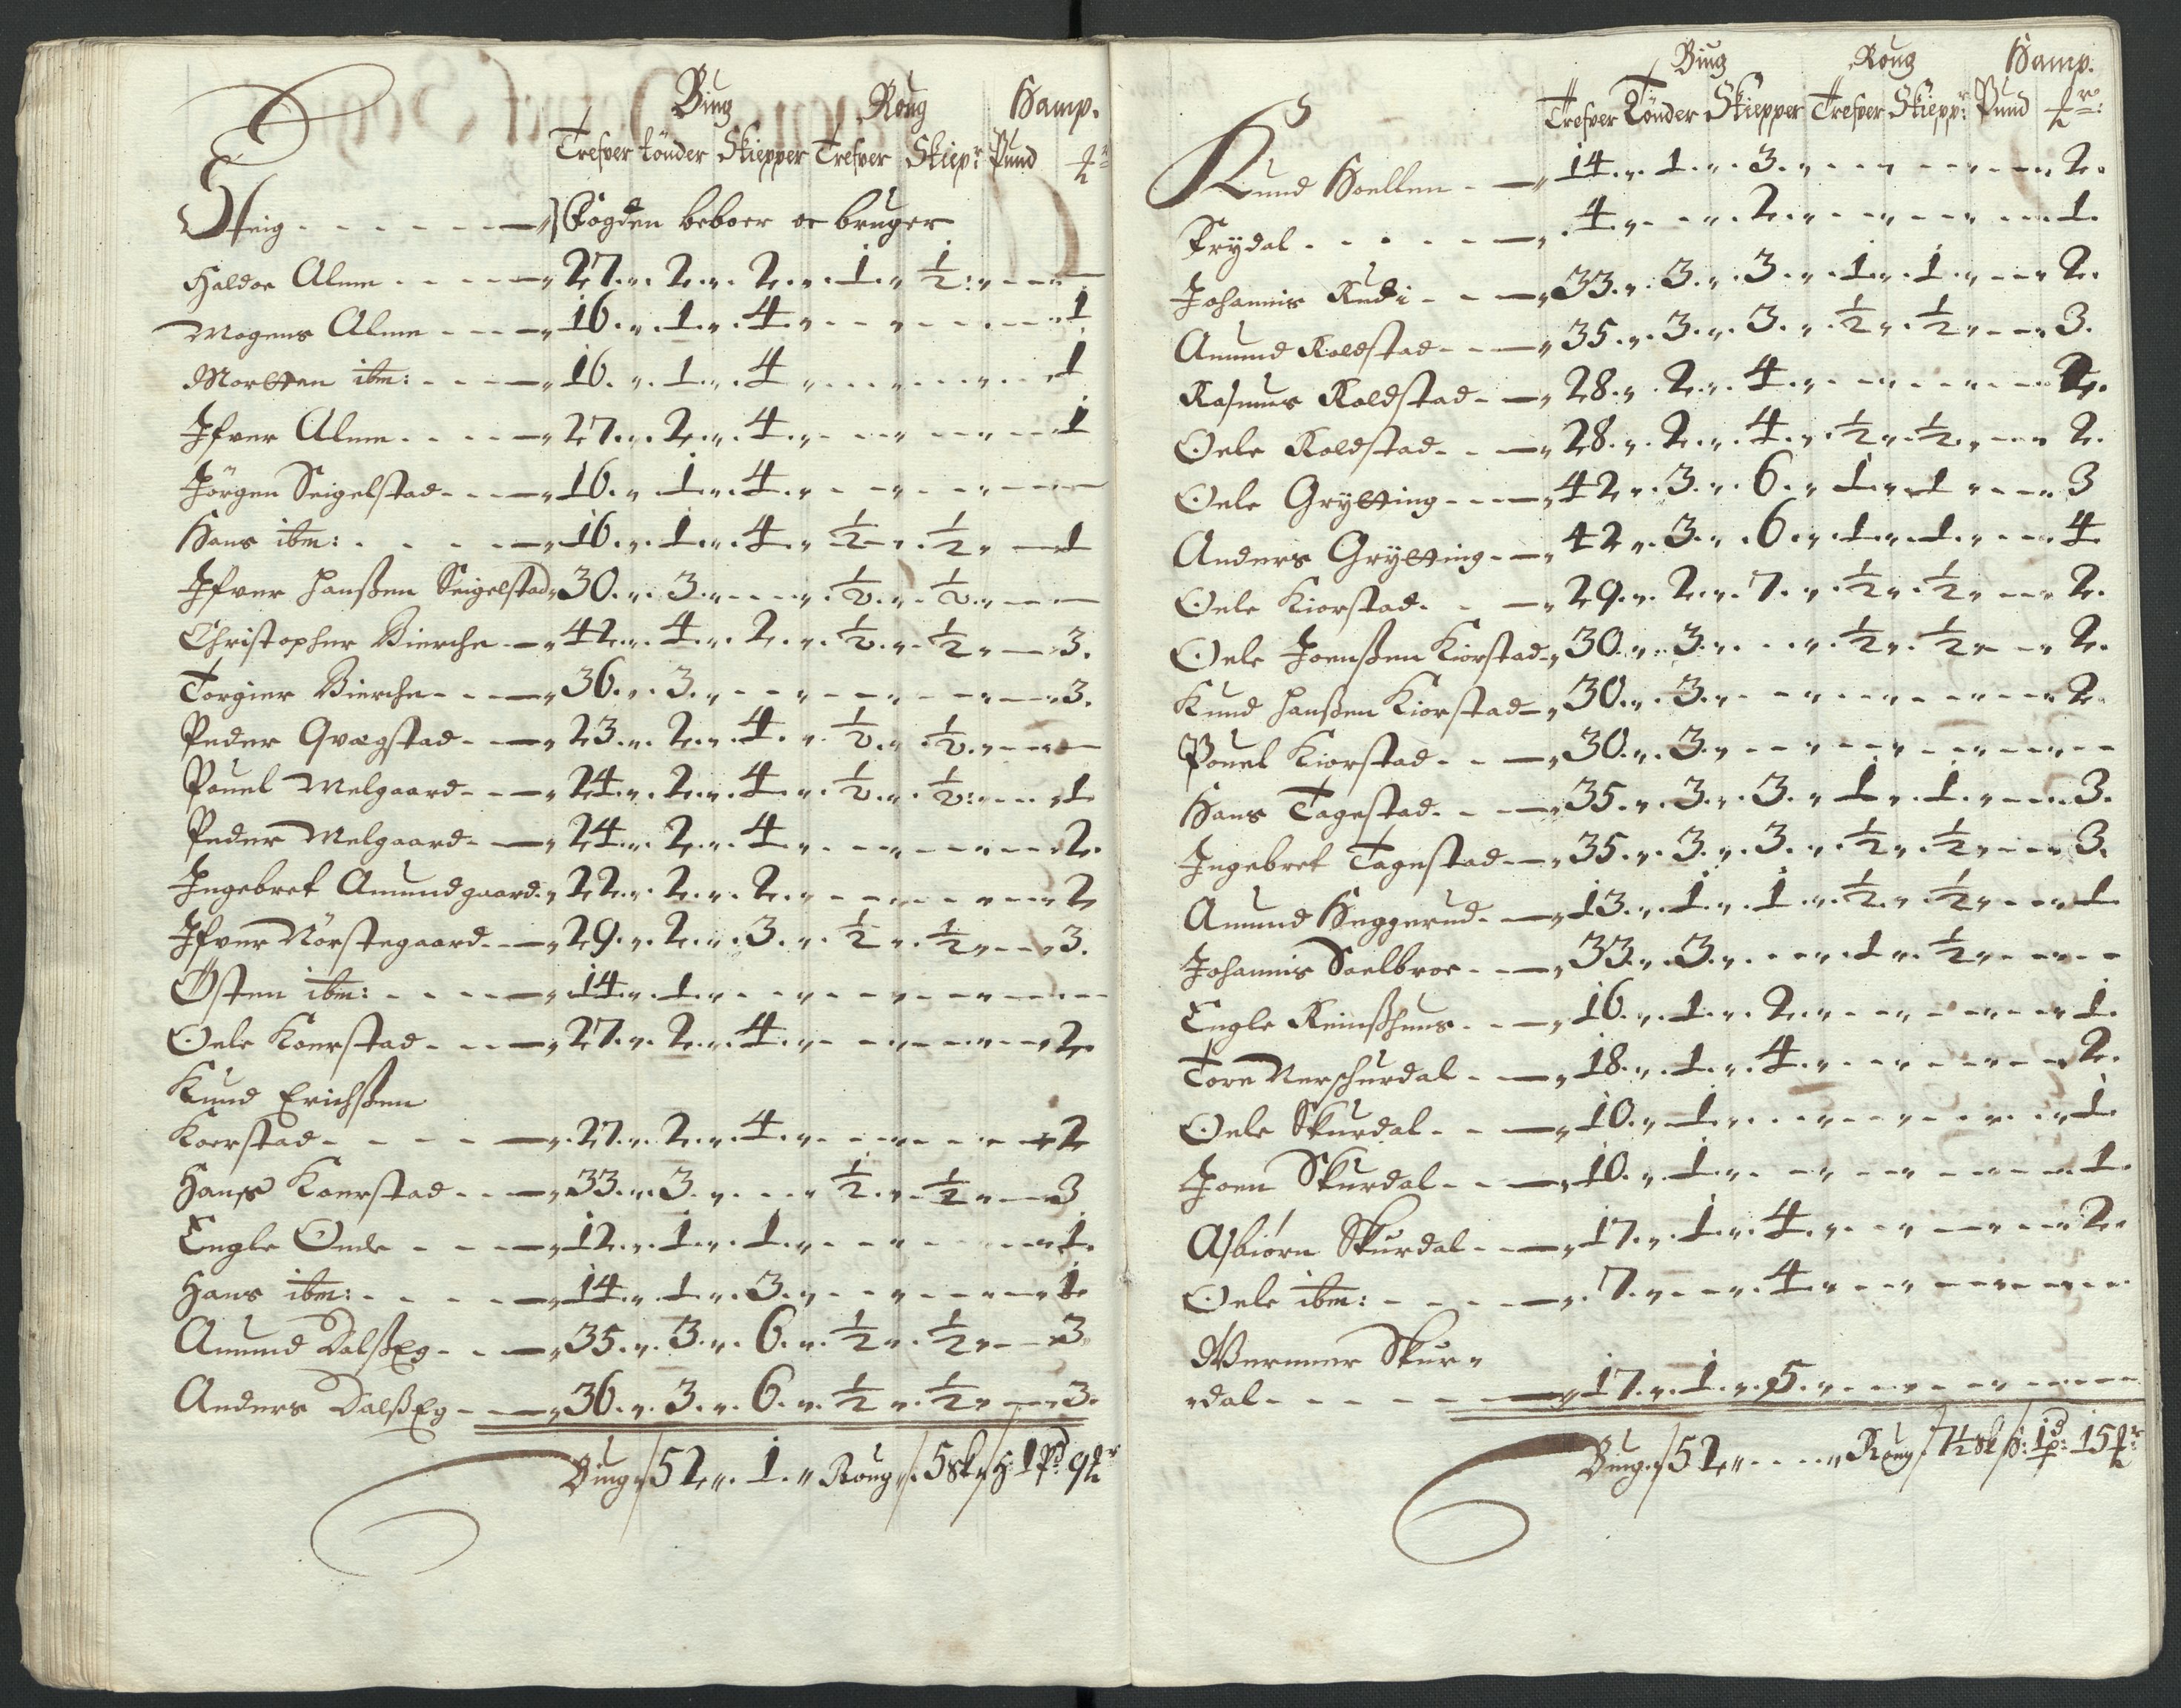 Biug Roug Hamp.
Trefver tönder Skiepper Trefver Skiepr: Pund
Steig - - - - - - Fogden beboer oc bruger
Haldor Alme - - - 27. 2. 2. 1. ½ - -
Mogens Alme - - - 16. 1. 4. - - - 1
Mortten ibm: - - - 16. 1. 4 - - - 1
Ifver Alme - - - 27. 2. 4. - - - 1
Jörgen Seigelstad - - - 16. 1. 4. - - -
Hans ibm: - - - 16. 1. 4. ½. ½ - 1
Ifver Hanßen Seigelstad 30. 3. - ½. ½. - -
Christopher Bierche - 42. 4. 2. ½. ½ - 3.
Torgier Bierche - - 36. 3. - - - - 3.
Peder Qvægstad - - 23. 2. 4. ½. ½. - -
Pouel Melgaard - - 24. 2. 4. ½. ½: - 1
Peder Melgaard - - 24. 2. 4. - - - 2.
Ingebret Amundgaard. 22. 2. 2. - - - 2
Ifver Nörstegaard - - 29. 2. 3. ½. ½ - 3.
Östen ibm: - - - 14. 1. - - - -
Oele Koerstad - - - 27. 2. 4. - - - 2.
Knud Erichßen
Koerstad - - - - 27. 2. 4. - - - 2
Hans Koerstad - - 33. 3. - ½. ½ - 3
Engle Onde - - - 12. 1. 1. - - - 1.
Hans ibm: - - - 14. 1. 3. - - - 1.
Amund Dalßeg - - 35. 3. 6. ½. ½ - 3.
Anders Dalßeg - - 36. 3. 6. ½. ½ - 3.
Biug 52. 1. Roug 5 sk H: 1 Pd 9
Biug Roug Hamp.
Trefver Tönder Skiepper Trefver Skiepr: Pund
Knud Hoellen - - 14. 1. 3. - - - 2.
Frydal - - - - 4. - 2. - - - 1.
Johannis Rudi - - 33. 3. 3. 1. 1. - 2.
Amund Koldstad - - 35. 3. 3. ½. ½ - 3.
Rasmus Koldstad - 28. 2. 4. - - - 2.
Oele Koldstad - - 28. 2. 4. ½. ½. - 2.
Oele Grytting - - 42. 3. 6. 1. 1 - 3
Anders Grytting - 42. 3. 6. 1. 1. - 4
Oele Kiorstad - - 29. 2. 7. ½. ½ - 2.
Oele Joenßen Kiorstad 30. 3. - ½. ½ - 2.
Knud Hanßen Kiorstad 30. 3. - - - - 2
Pouel Kiorstad - - 30. 3. - - - - -
Hans Tagestad - - 35. 3. 3. 1. 1. - 3.
Ingebret Tagestad - 35. 3. 3. ½. ½ - 3.
Amund Heggerud - 13. 1. 1. ½. ½ - 1
Johannis Soelbroe - - 33. 3. - 1. ½ - -
Engle Reinßhuus - - 16. 1. 2. - - - 1.
Tore Nerschurdal - - 18. 1. 4. - - - 2.
Oele Skurdal - - 10. 1. - - - - 1
Joen Skurdal - - 10. 1. - - - - 1.
Asbiörn Skurdal - - 17. 1. 4. - - - 2.
Oele ibm: - - - 7. - 4. - - - -
Wermer Skur-
dal - - - - - 17. 1. 5. - - - -
Biug 52. - - Roug 7½ sk H: 1 pd: 15